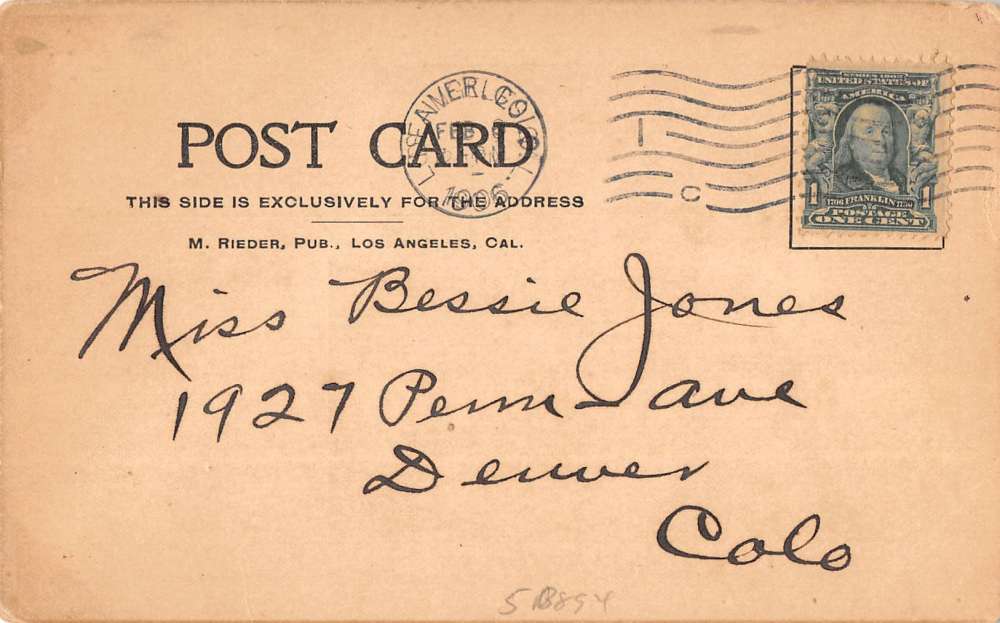 POST CARD
THIS SIDE IS EXCLUSIVELY FOR THE ADDRESS
M. RIEDER, PUB., LOS ANGELES, CAL.
FEB
1906
SERIES 1902
UNITED STATES OF
AMERICA
1 1
1706 FRANKLIN 1790
POSTAGE
ONE CENT
Miss Bessie Jones
1927 Penn ave
Denver
Colo